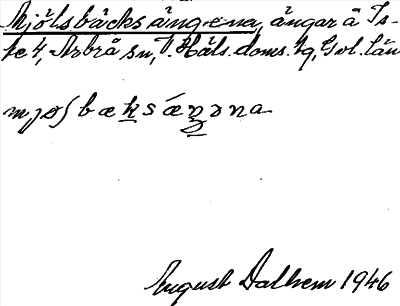 Mjölsbäcksängena, ängar å Is-
te 4, Arbrå sn, V. Häls. doms. hg, Gvl. län
mjosbæksæŋəna
August Dalhem 1946